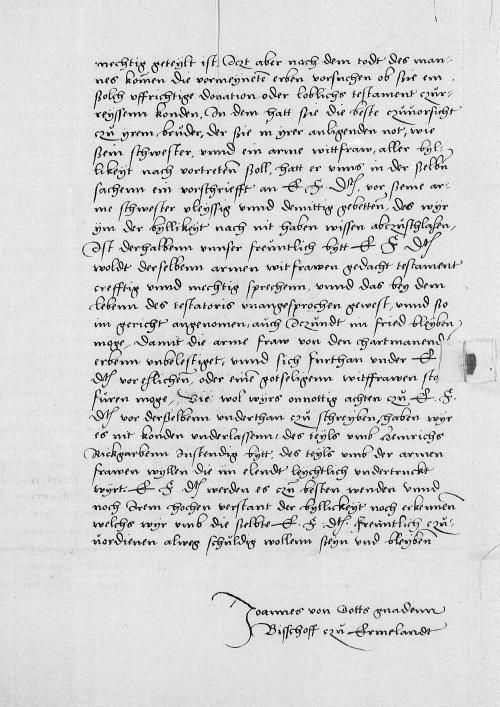 mechtig geteylt ist, Itzt aber noch dem todt des man-
nes komen die vormeynete erben vorsuchen ob sie ein
solch uffrichtige donation oder loblichs testament czur-
reyssenn konden, In dem hatt sie die beste czuuorsicht
czu yrem bruder, der sie in yrer anligenden not, wie
sein schwester, unnd ein arme wittfraw, aller byl-
likeyt nach vortreten soll, hatt er unns in der selbn
sachenn ein vorschriefft an E F Dt, vor seine ar-
me schwester vleyssig unnd demittig gebetten, des wyr
ym der byllikeyt nach nit haben wissen abczuschlahen,
Ist derhalbenn unnser freuntlich bytt E F Dt
woldt derselbenn armen witfrawen gedacht testament
crefftig unnd mechtig sprechenn, unnd das bey dem
lebenn des testatoris unangesprochen gewest, unnd so
im gericht angenomen, auch Itzundt im fried bleyben
moge, Damit die arme fraw von den chartmanend
erbenn unbelestiget, unnd sich furthan under E
Dt vor eflichen, oder eine gotseligenn wittfrawen sto
furen moge, Wie wol wyrs onnottig achten czu E F
Dt vor derselbenn underthan czu schreyben, haben wyr
es nit konden underlassenn, des teyls umb Heinrichs
Rickgarbenn Instendig bytt, des teyls umb der armen
frawen wyllen die im elendt leychtlich undertruckt
wyrt E F Dt werden es czu besten wenden unnd
noch Irem hochen verstant der byllickeyt noch erkennen
welchs wyr umb die selbte E F Dt freuntlich czu-
uordienen alweg schuldig wollenn seyn und bleyben
Joannes von Gotts gnadenn
Bisschoff czu Ermelandt